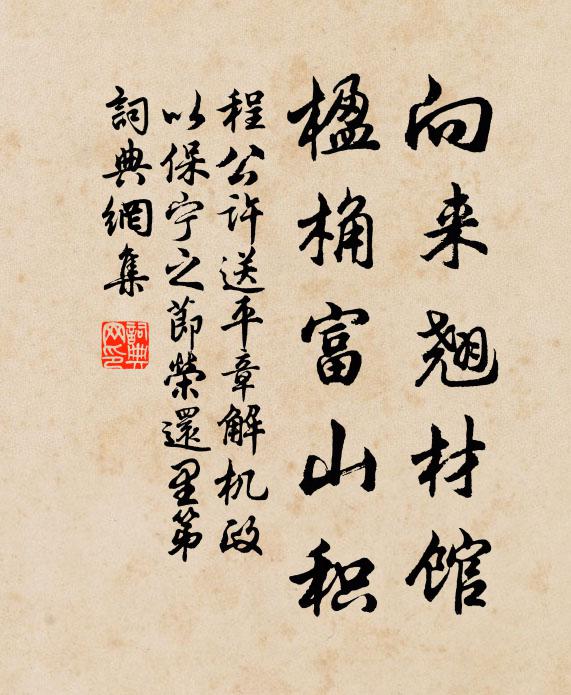 向来翘材馆
楹桷富山积
程公许送平章解机政
以保宁之節榮還里第
詞典網集
詞典网印